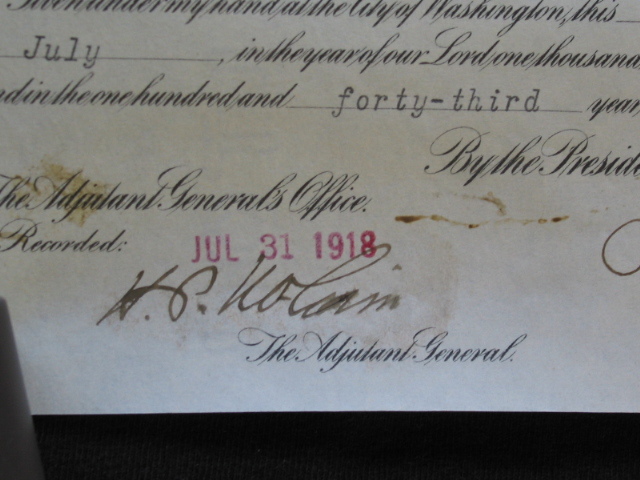 Given under my hand, at the City of Washington, this
July, in the year of our Lord one thousand
nd in the one hundred and forty-third year
By the Preside
The Adjutant General's Office.
Recorded: JUL 31 1918
H. P. McCain
The Adjutant General.